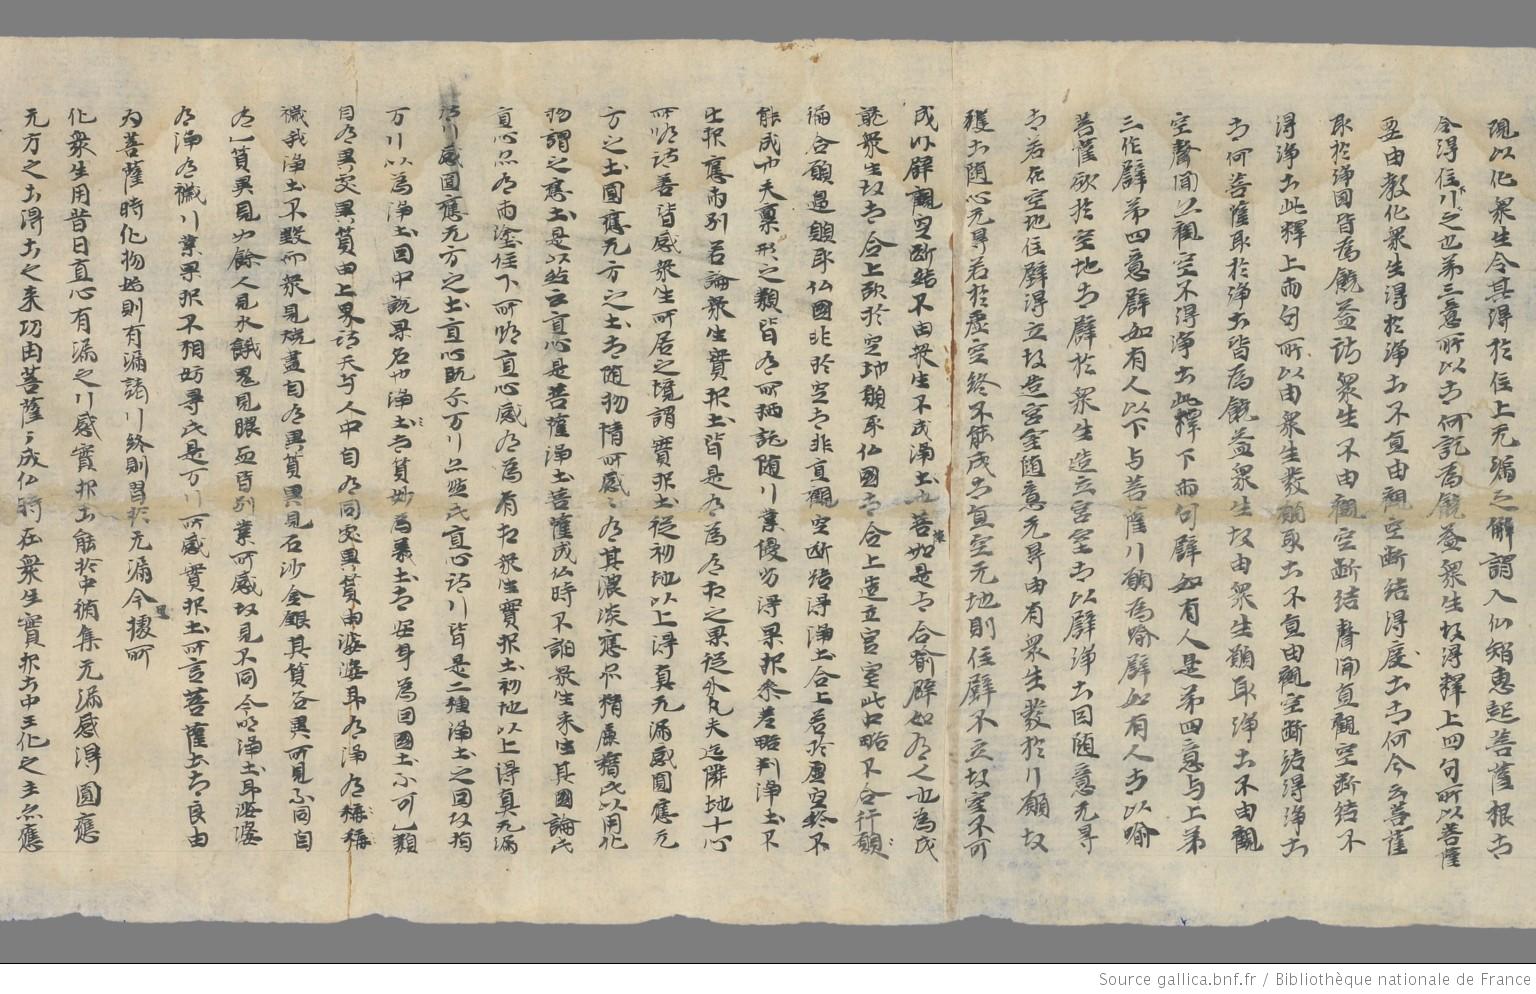 現以化衆生令其得於住上无漏之解謂入仏智惠起菩薩根者
令得住下川之也第三意所以者何訖為饒益衆生故得釋上四句所以菩薩
要由教化衆生得於淨土不直由觀空斷結得度土者何今云菩薩
取於淨国皆為饒益諸衆生不由觀空斷結聲聞直觀空斷結不
得淨土此釋上兩句所以由衆生發願取土不直由觀空斷結得淨土
者何菩薩取於淨土皆為饒益衆生故由衆生願取淨土不由觀
空聲聞以觀空不得淨土此釋下兩句譬如有人是第四意与上第
三作譬第四意譬如有人以下与菩薩川願為喻譬如有人者以喻
菩薩欲於空地者譬於衆生造立宮室者以譬淨土因随意无㝵
者若在空地住譬得立故造宮室随意无㝵由有衆生發於川願故
獲土随心无㝵若於虛空終不能成者直空无地則住譬不立故室不可
成以譬觀空斷結不由衆生不成淨土也菩薩如是者合喻譬如有人也為成
就衆生故者合上欲於空地願取仏國者合上造立宮室此中略不合行願
徧合願過願取仏國非於空者非直觀空斷結得淨土合上若於虛空終不
能成也夫稟形之類皆有所栖託随川業優劣得果報參差略判淨土不
出报應兩別若論衆生實报土皆是有為有相之果從外凡夫迄隣地十心
所以諸善皆感衆生所居之境謂實报土從初地以上得真无漏感圓應无
方之土圓應无方之土者随物情所感〻有其濃淡應亦精麁〻此以用化
物謂之應土是以經云直心是菩薩淨土菩薩成仏時不諂衆生来生其國論此
直心亦有兩塗住下所明直心感有為有相衆生實报土初地以上得真无漏
諸川感圓應无方之土直心既尒万川亦然此直心諸川皆是二種淨土之因故指
万川以為淨土因中説果名也淨土者質妙為義土者安身為目國土不可一類
自有異處異質由上界諸天与人中自有同處異質由婆婆耳有淨有穢〻
穢我淨土不毀而衆見燒盡自有異質異見石沙金銀其質各異所見不同自
有一質異見如餘人見水餓鬼見膿血皆別業所感故見不同今以淨土耳婆婆
有淨有穢川業果报不相妨㝵此是万川所感實报土所言菩薩土者良由
為菩薩時化物始則有漏諸川終則習於无漏今據所
化衆生用昔日直心有漏之川感實报土能於中備集无漏感得圓應
无方之土得土之来功由菩薩〻成仏時在衆生實报土中王化之主亦應
Source gallica.bnf.fr / Bibliothèque nationale de France